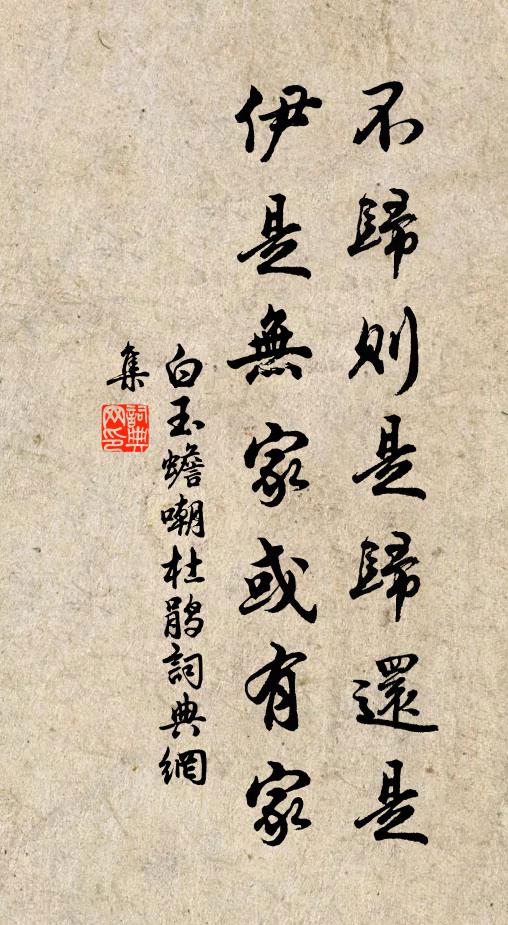 不歸則是歸還是
伊是無家或有家
白玉蟾嘲杜鵑詞典網
集
詞典网印